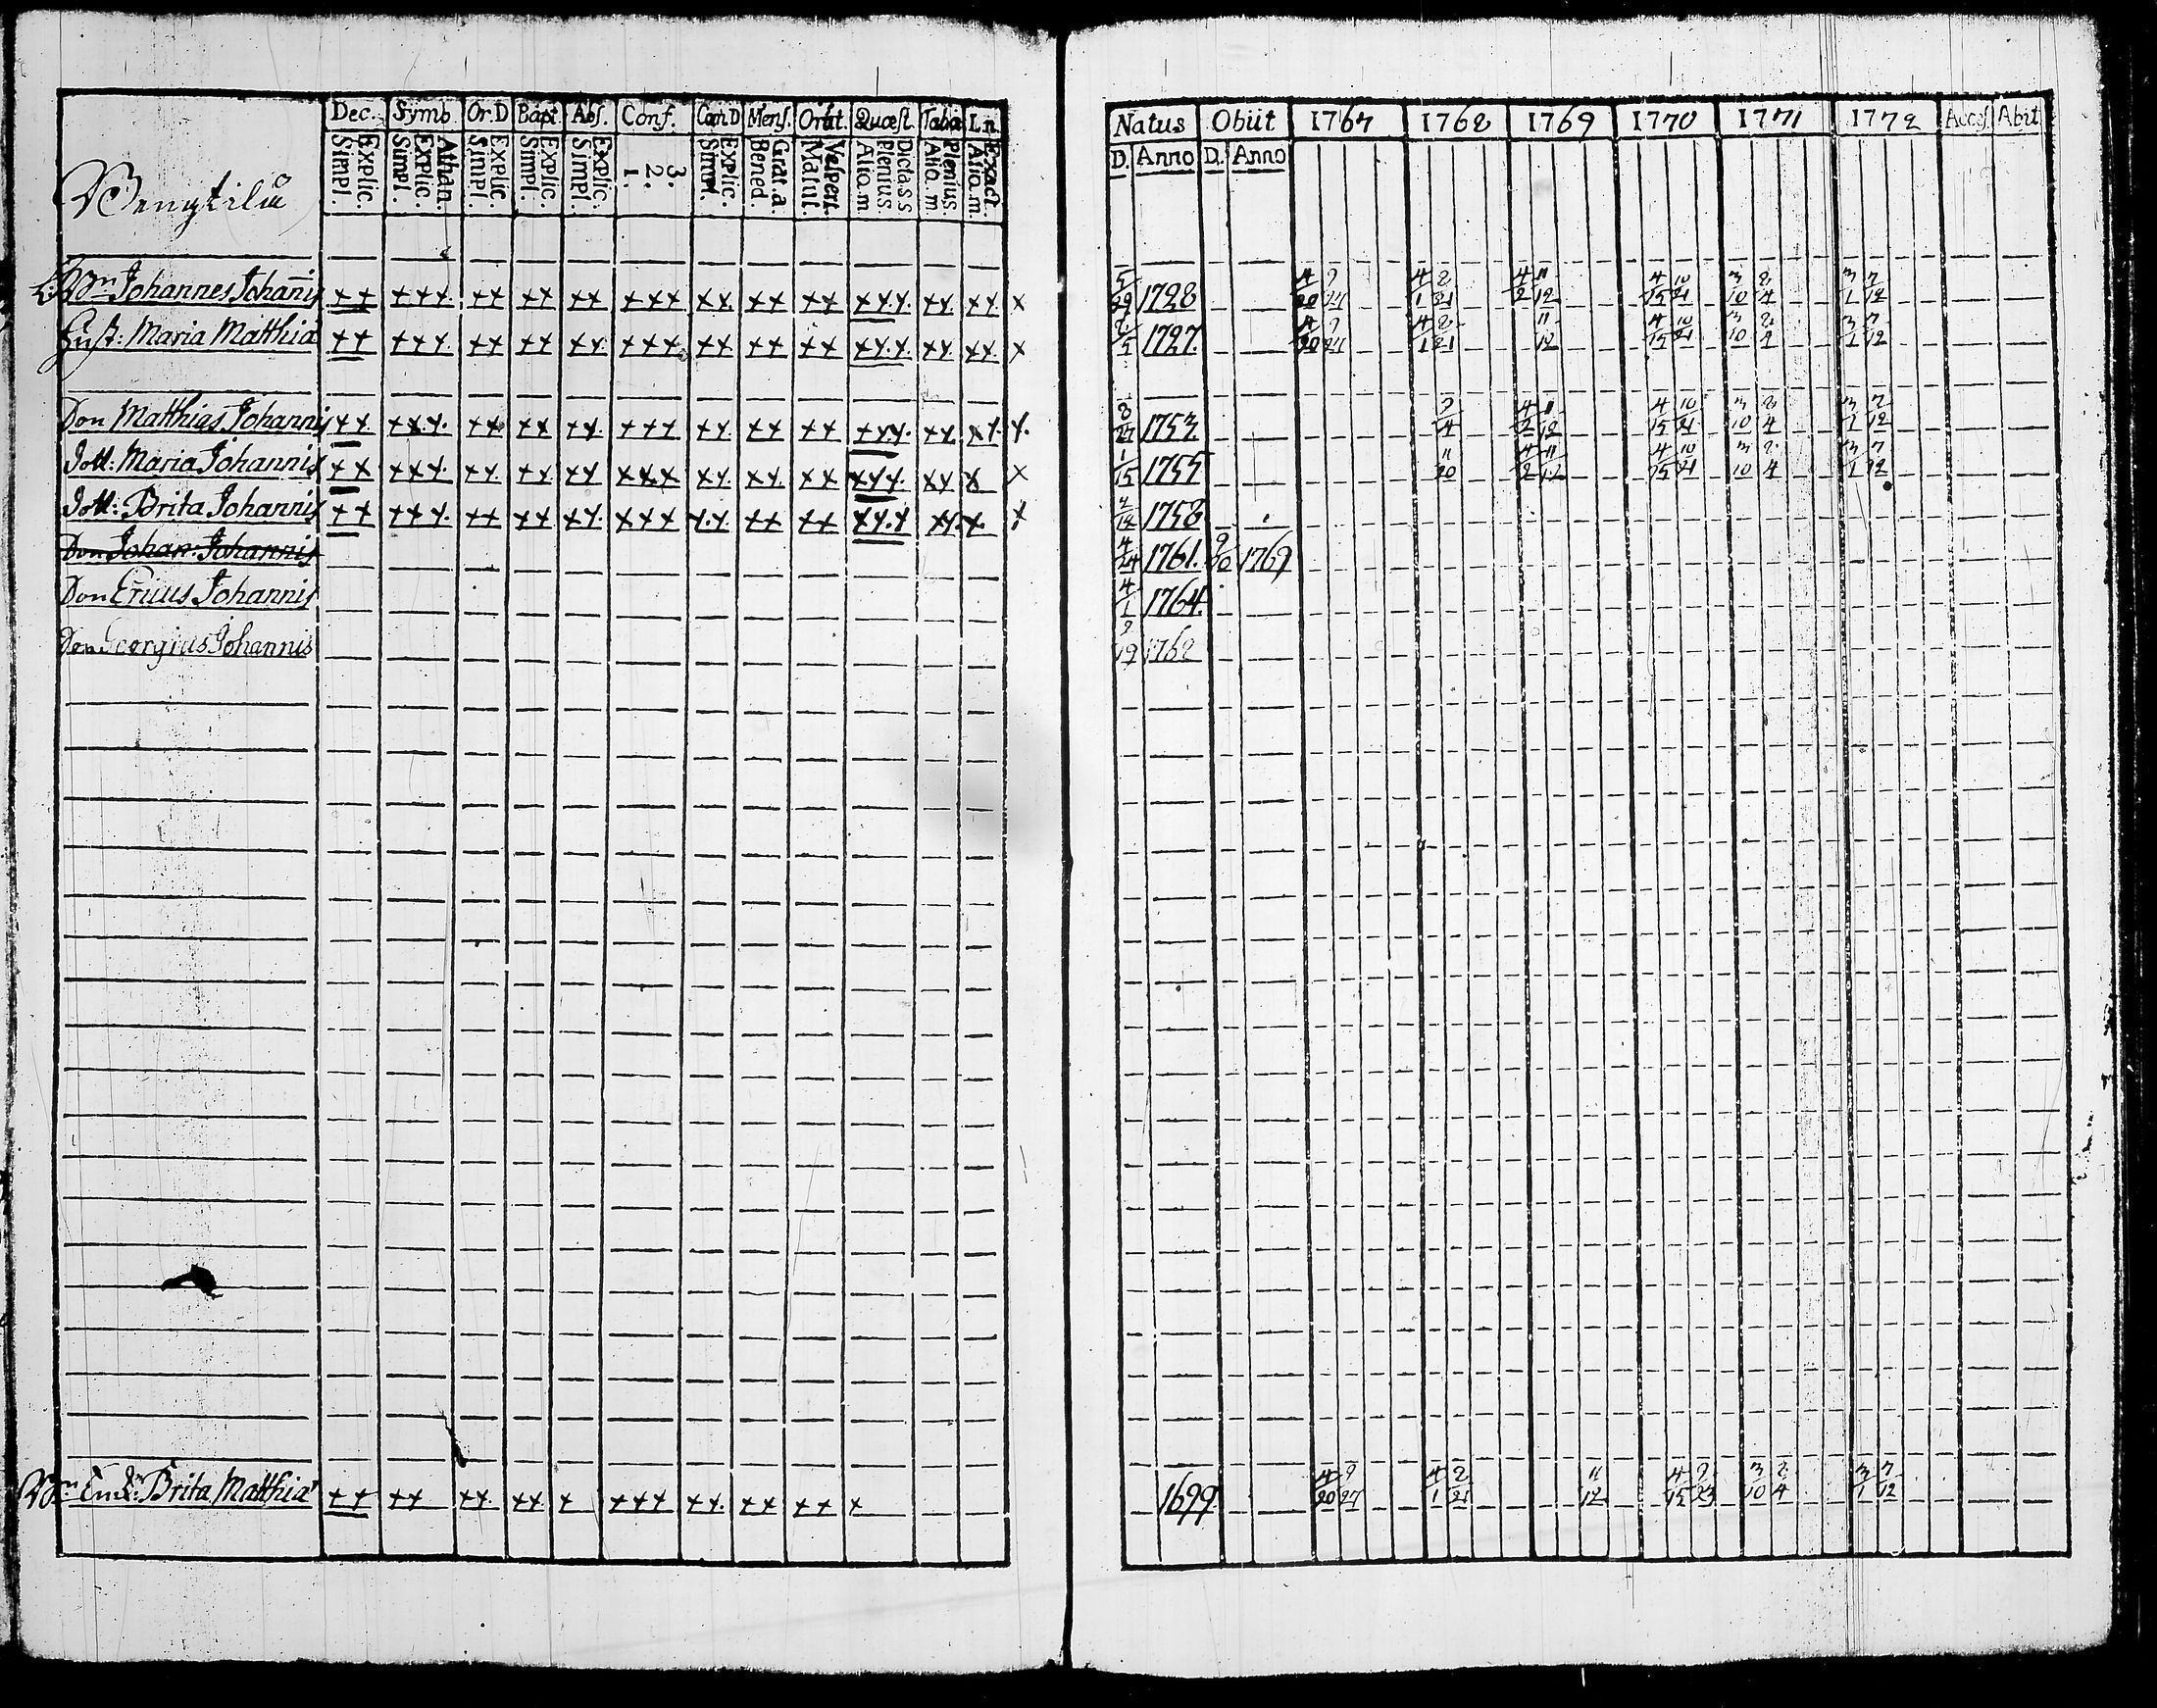 Dec. Symb. Or.D Bapt. Abs. Conf. Cœn D Mens. Orat. Quæst. Tabæ
Explic. Simpl. Athan. Explic. Simpl. Explic. Simpl. Explic. Simpl. Explic. Simpl. 3. 2. 1. Explic. Simpl. Grat. a. Bened Vespert. Matut. Dicta s s Plenius. Alio. m Plenius. Alio. m. Exact. Alio. m.
Natus Obiit 1767 1768 1769 1770 1771 1772 Access. Abiit
D. Anno D. Anno
Johannes Johañis ++ +++ ++ ++ ++ +++ ++ ++ ++ xx.x. xx. xx. x 5/29 1728 4/20 9/27 4/1 8/21 4/2 11/12 4/15 10/21 3/10 2/4 3/1 7/12
Hust: Maria Matthiæ ++ +++ ++ ++ ++ +++ ++ ++ ++ xx.x. xx. xx. x 1727. 4/20 9/27 4/1 8/21 11/12 4/15 10/21 3/10 2/4 3/1 7/12
Son Matthias Johannis ++ +++ ++ ++ ++ +++ ++ ++ ++ xxx. xx. xx. x. 8/27 1753. 9/4 4/2 11/12 4/15 10/21 3/10 2/4 3/1 7/12
Dott: Maria Johannis ++ xxx. xx. xx xx xxx xx. xx. xx xxx. xx x x 1/15 1755 11/20 4/2 11/12 4/15 10/21 3/10 2/4 3/1 7/12
Dott: Brita Johannis ++ +++ ++ ++ xx. xxx x.x ++ ++ xx.x xx. x. x 1758
Son Johan: Johannis 4/24 1761. 1769
Son Ericus Johannis 4/1 1764.
Son Georgius Johannis 1768
Enk: Brita Matthiæ ++ ++ ++. ++ + +++ ++. ++ ++ x 1699 4/20 9/27 4/1 8/21 11/12 4/15 9/23 3/10 2/4 3/1 7/12